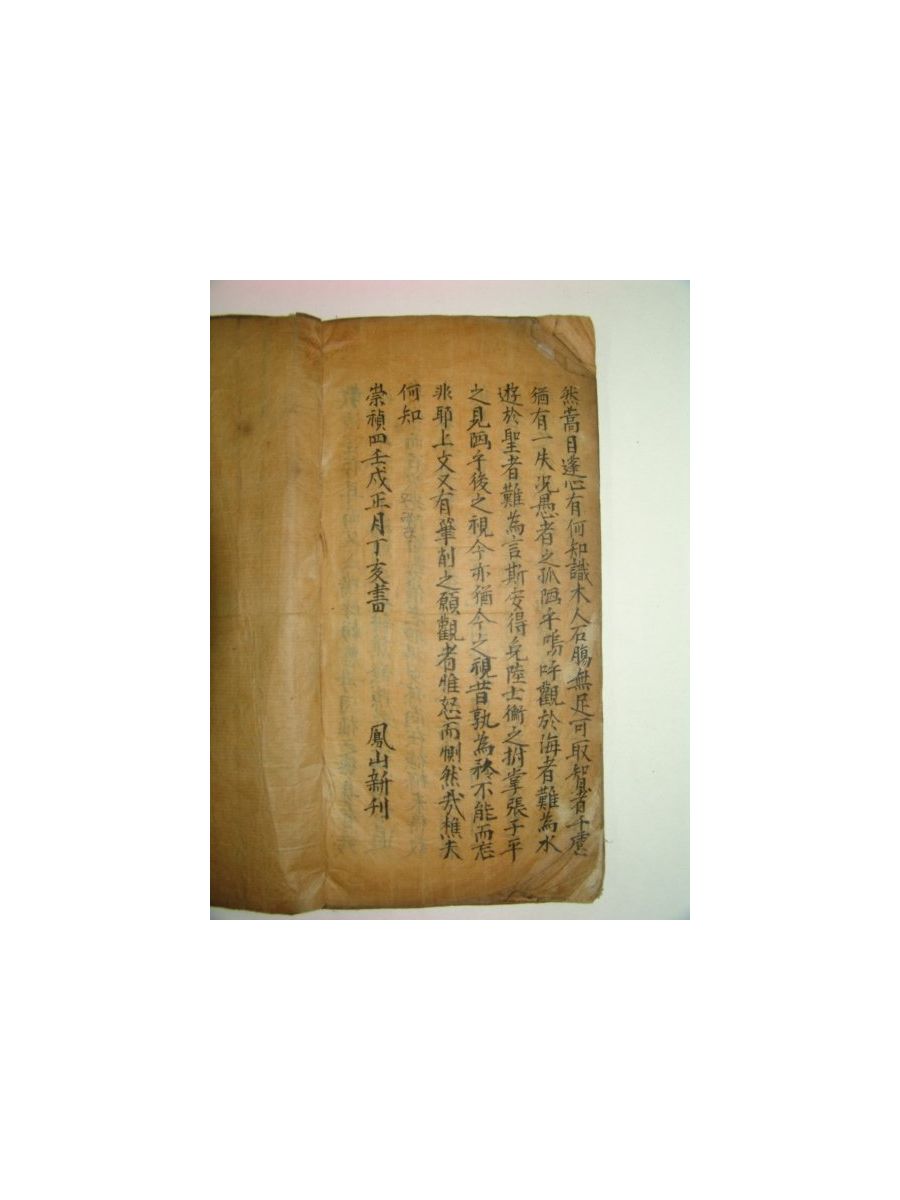 然蒿目逢心有何知識木人石腸無足可取智者千慮
猶有一失況愚者之孤陋乎嗚呼觀於海者難為水
遊於聖者難為言斯安得免陸士衡之拊掌張子平
之見陋乎後之視今亦猶今之視昔孰為矜不能而忘
非耶上文又有筆削之願觀者惟恕而惻然哉樵夫
何知
崇禎四壬戌正月丁亥書 鳳山新刊